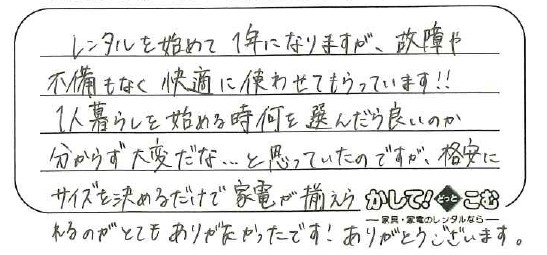 レンタルを始めて1年になりますが、故障や
不備もなく快適に使わせてもらっています!!
1人暮らしを始める時何を選んだら良いのか
分からず大変だな…と思っていたのですが、格安に
サイズを決めるだけで家電が揃えら
かして!どっとこむ
家具・家電のレンタルなら
れるのがとてもありがたかったです!ありがとうございます。